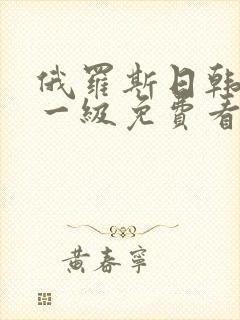 俄羅斯日韩
一級免費看
黄春寧